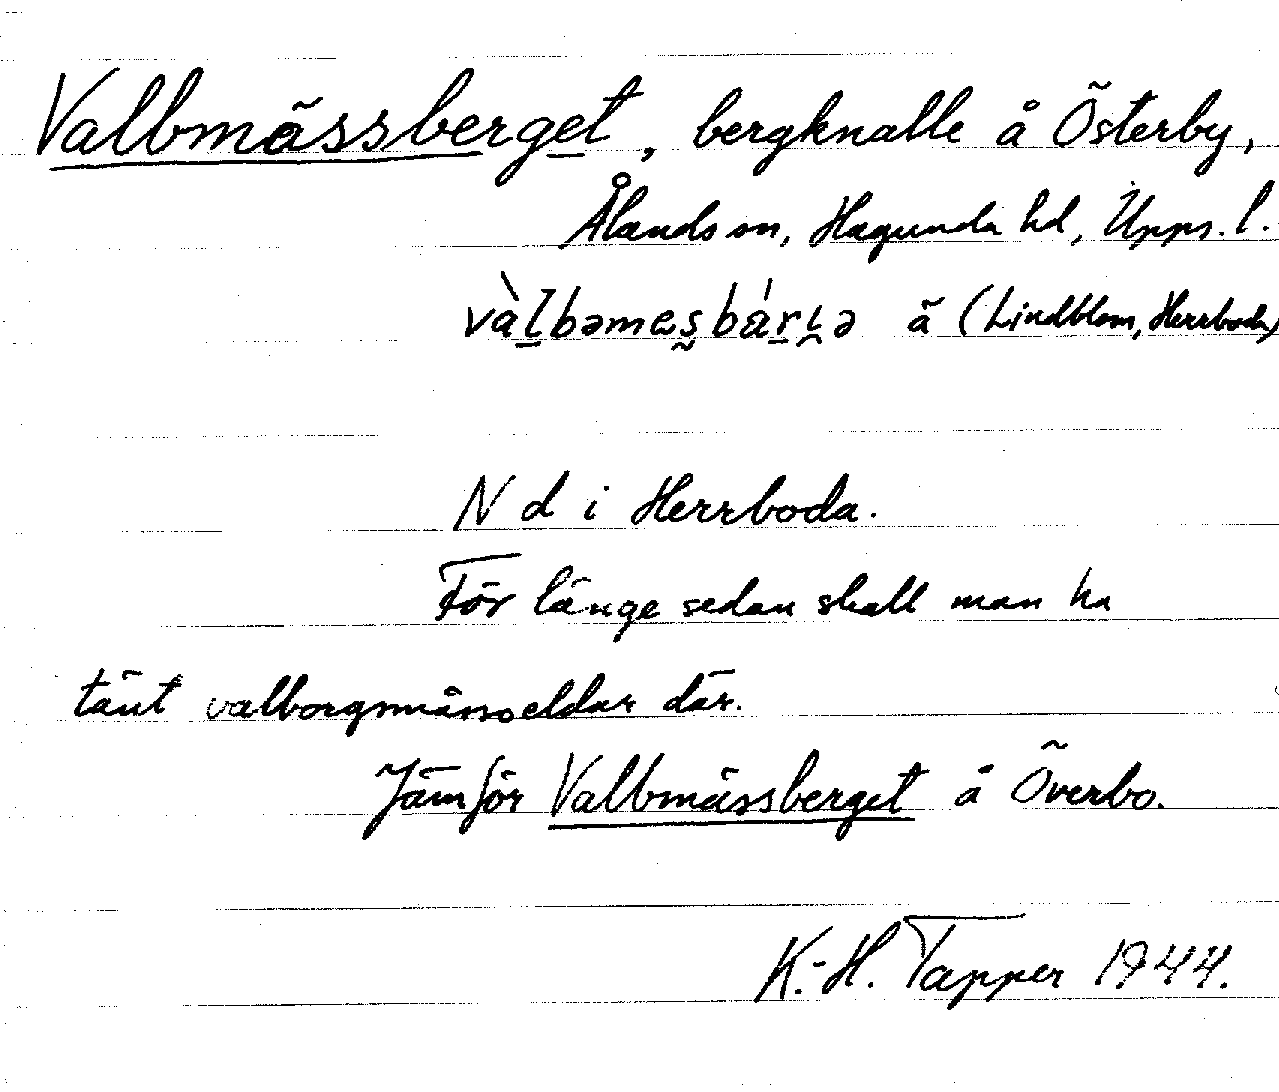 Valbmässberget, bergknalle å Österby,
Ålands sn, Hagunda hd, Upps. l.
vàlbəmesbárɩə ä (Lindblom, Herrboda)
N d i Herrboda.
För länge sedan skall man ha
tänt valborgsmässoeldar där.
Jämför Valbmässberget å Överbo.
K.-H. Tapper 1944.